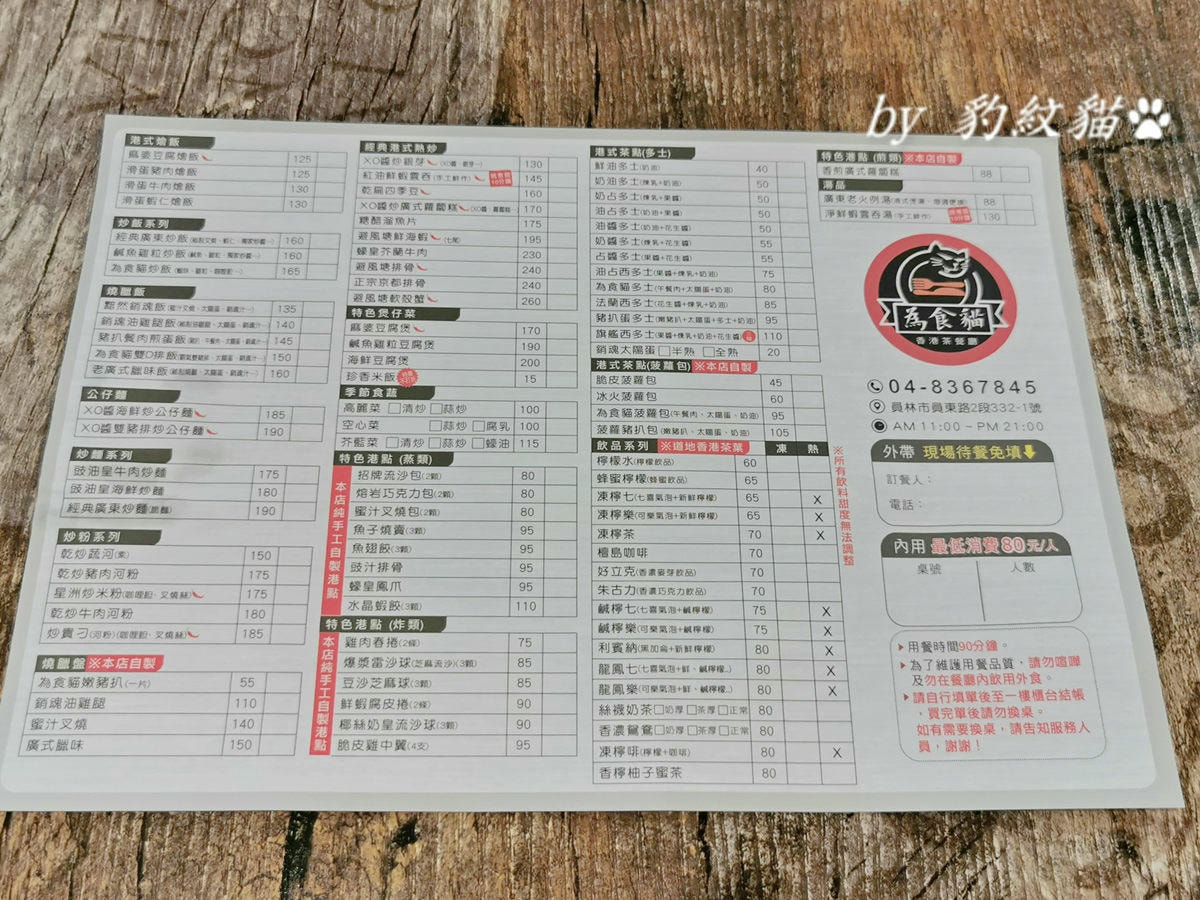 by 豹紋貓
港式燴飯
麻婆豆腐燴飯 125
滑蛋豬肉燴飯 125
滑蛋牛肉燴飯 130
滑蛋蝦仁燴飯 130
炒飯系列
經典廣東炒飯 160
鹹魚雞粒炒飯 160
為食貓炒飯 165
燒臘飯
黯然銷魂飯 135
銷魂油雞腿飯 140
豬扒餐肉煎蛋飯 145
為食貓雙D排飯 150
老廣式臘味飯 160
公仔麵
XO醬海鮮炒公仔麵 185
XO醬雙豬排炒公仔麵 190
炒麵系列
豉油皇牛肉炒麵 175
豉油皇海鮮炒麵 180
經典廣東炒麵 190
炒粉系列
乾炒蔬河(素) 150
乾炒豬肉河粉 175
星洲炒米粉(咖哩粉、叉燒絲) 175
乾炒牛肉河粉 180
炒貴刁(河粉)(咖哩粉、叉燒絲) 185
燒臘盤 ※本店自製
為食貓嫩豬扒(一片) 55
銷魂油雞腿 110
蜜汁叉燒 140
廣式臘味 150
經典港式熱炒
XO醬炒銀芽(XO醬、銀芽…) 130
紅油鮮蝦雲吞(手工鮮作) 145
乾扁四季豆 160
XO醬炒廣式蘿蔔糕 170
糖醋溜魚片 175
避風塘鮮海蝦(七尾) 195
蠔皇芥蘭牛肉 230
避風塘排骨 240
正宗京都排骨 240
避風塘軟殼蟹 260
特色煲仔菜
麻婆豆腐煲 170
鹹魚雞粒豆腐煲 190
海鮮豆腐煲 200
珍香米飯 15
季節食蔬
高麗菜 □清炒 □蒜炒 100
空心菜 □蒜炒 □腐乳 100
芥藍菜 □清炒 □蒜炒 □蠔油 115
特色港點 (蒸類)
本店純手工自製港點
招牌流沙包(2顆) 80
熔岩巧克力包(2顆) 80
蜜汁叉燒包(2顆) 80
魚子燒賣(3顆) 95
魚翅餃(3顆) 95
豉汁排骨 95
蠔皇鳳爪 95
水晶蝦餃(3顆) 110
特色港點 (炸類)
本店純手工自製港點
雞肉春捲(2條) 75
爆漿雷沙球(芝麻流沙)(3顆) 85
豆沙芝麻球(3顆) 85
鮮蝦腐皮捲(2條) 90
椰絲奶皇流沙球(3顆) 90
脆皮雞中翼(4支) 95
港式茶點(多士)
鮮油多士(奶油) 40
奶油多士(煉乳+奶油) 50
奶占多士(煉乳+果醬) 50
油占多士(奶油+果醬) 50
油醬多士(奶油+花生醬) 50
奶醬多士(煉乳+花生醬) 55
占醬多士(果醬+花生醬) 55
油占西多士(果醬+煉乳+奶油) 75
為食貓多士(午餐肉+太陽蛋+奶油) 80
法蘭西多士(花生醬+煉乳+奶油) 85
豬扒蛋多士(嫩豬扒+太陽蛋+多士+奶油) 95
旗艦西多士(果醬+煉乳+奶油+花生醬) 110
銷魂太陽蛋 □半熟 □全熟 20
港式茶點(菠蘿包) ※本店自製
脆皮菠蘿包 45
冰火菠蘿包 60
為食貓菠蘿包(午餐肉、太陽蛋、奶油) 95
菠蘿豬扒包(嫩豬扒、太陽蛋、奶油) 105
飲品系列 ※道地香港茶葉 凍 熱
檸檬水(檸檬飲品) 60
蜂蜜檸檬(蜂蜜飲品) 65
凍檸七(七喜氣泡+新鮮檸檬) 65 X
凍檸樂(可樂氣泡+新鮮檸檬) 65 X
凍檸茶 70 X
檀島咖啡 70
好立克(香濃麥芽飲品) 70
朱古力(香濃巧克力飲品) 70
鹹檸七(七喜氣泡+鹹檸檬) 75 X
鹹檸樂(可樂氣泡+鹹檸檬) 75 X
利賓納(黑加侖+新鮮檸檬) 80 X
龍鳳七(七喜氣泡+鮮、鹹檸檬..) 80 X
龍鳳樂(可樂氣泡+鮮、鹹檸檬..) 80 X
絲襪奶茶 □奶厚 □茶厚 □正常 80
香濃鴛鴦 □奶厚 □茶厚 □正常 80
凍檸啡(檸檬+咖啡) 80 X
香檸柚子蜜茶 80
※所有飲料甜度無法調整
特色港點 (煎類) ※本店自製
香煎廣式蘿蔔糕 88
湯品
廣東老火例湯 88
淨鮮蝦雲吞湯(手工鮮作) 130
為食貓
香港茶餐廳
04-8367845
員林市員東路2段332-1號
AM 11:00 ~ PM 21:00
外帶 現場待餐免填
訂餐人：
電話：
內用 最低消費80元/人
桌號 人數
用餐時間90分鐘。
為了維護用餐品質，請勿喧嘩
及勿在餐廳內飲用外食。
請自行填單後至一樓櫃台結帳
，買完單後請勿換桌。
如有需要換桌，請告知服務人
員，謝謝！